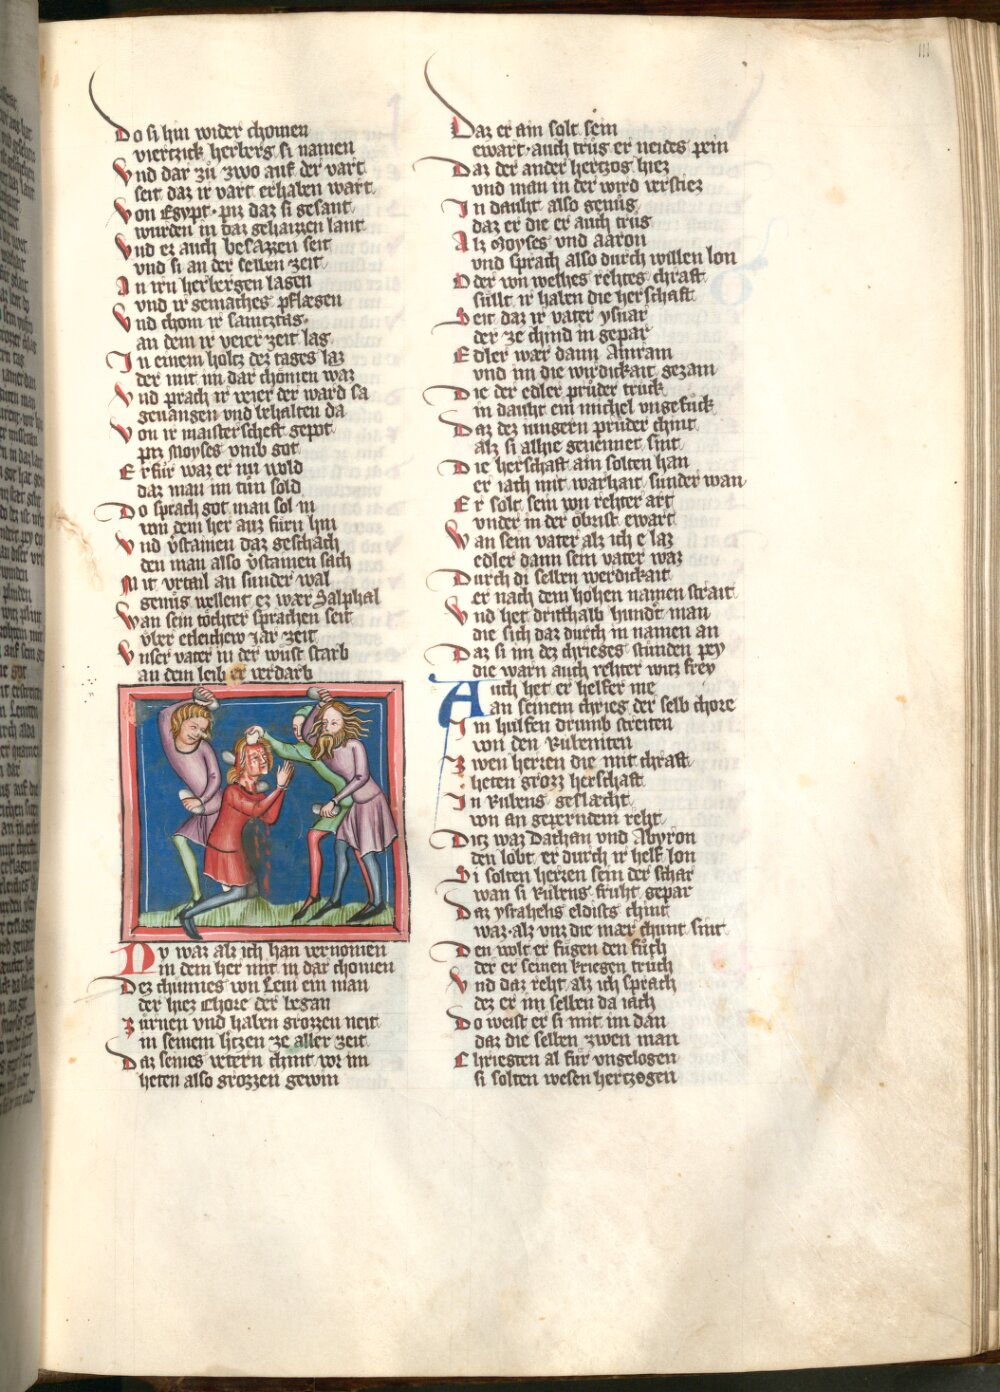 Do si hin wider chomen
viertzick herberg si namen
Vnd dar zů zwo auf der vart
seit daz ir vart erhaben wart
Von Egypt piz daz si gesant
wurden in daz gehaizzen lant
Vnd ez auch besazzen seit
vnd si an der selben zeit
In irn herbergen lagen
vnd ir gemaches pflægen
Vnd chom ir samtztag
an dem ir veier zeit lag
In einem holtz dez tages laz
der mit im dar chömen waz
Vnd prach ir veier der ward sa
geuangen vnd behalten da
Von ir maisterscheft gepot
piz Moyses vmb got
Erfůr waz er nu wold
daz man im tůn sold
Do sprach got man sol in
von dem her auz fůrn hin
Vnd v̊stainen daz geschach
den man also v̊stainen sach
Mit vrtail an sunder wal
genůg wellent ez wær Salphal
Wan sein tochter sprachen seit
vber etleichew Jar zeit
Vnser vater in der wůst starb
an dem leib er verdarb
Nv waz alz ich han vernomen
in dem her mit in dar chomen
Dez chunnes von Leui ein man
der hiez Chore der began
Zurnen vnd haben grozzen neit
in seinem hertzen ze aller zeit
Daz seines vetern chint vor im
heten also grozzen gewin
Daz er ain solt sein
ewart auch trůg er neides pein
Daz der ander hertzog hiez
vnd man in der wird verstiez
In daucht also genůg
daz er die er auch trůg
Alz Moyses vnd aaron
vnd sprach also durch willen lon
Oder von welhes rehtes chraft
sůllt ir haben die herschaft
Seit daz ir vater ysuar
der ze chind in gepar
Edler war dann Amram
vnd im die wirdichait gezam
Die der edler průder trůck
in daucht ein michel vngefůck
Daz dez iungern průder chint
alz si alhie genennet sint
Die herschaft ain solten han
er iach mit warhait sunder wan
Er solt sein von rehter art
vnder in der obrist ewart
Wan sein vater alz ich e laz
edler dann sein vater waz
Durch di selben werdichait
er nach dem hohen namen strait
Vnd het dritthalb hundert man
die sich daz durch in namen an
Daz si im dez chrieges stůnden pey
die warn auch rehter witz frey
Auch het er helfer me
an seinem chrieg der selb chore
Im hulfen drumb streiten
von den Rubeniten
Zwen herren die mit chraft
heten grozz herschaft
In Rubens geslæcht
von an geperndem reht
Ditz waz Dathan vnd Abyron
den lobt er durch ir helf lon
Si solten herren sein der schar
wan si Rubens fruht gepar
Daz ysrahels eldists chint
waz alz vnz die mær chunt sint
Den wolt er fůgen den fůch
der er seinen kriegen trůch
Vnd daz reht alz ich sprach
dez er im selben da iach
Do weist er si mit im dan
daz die selben zwen man
Chriegten al für vngelogen
si solten wesen hertzogen